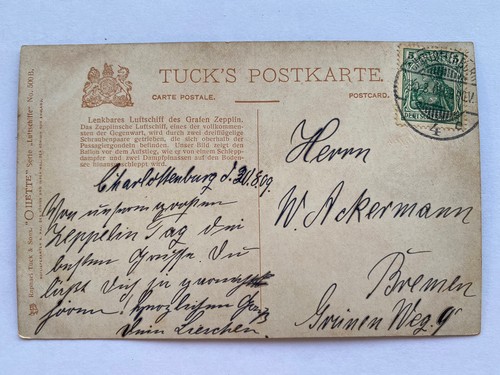 TUCK'S POSTKARTE.
CARTE POSTALE.
POSTCARD.
Lenkbares Luftschiff des Grafen Zeppelin.
Das Zeppelinsche Luftschiff, eines der vollkommensten
der Gegenwart, wird durch zwei dreiflügelige
Schraubenpaare getrieben, die sich oberhalb der
Passagiergondeln befinden. Unser Bild zeigt den
Ballon vor dem Aufstieg, wie er von einem Schleppdampfer
und zwei Dampfpinassen auf den Bodensee
hinausgeschleppt wird.
Charlottenburg d. 30.8.09.
Von unserm grossen
Zeppelin Tag die
besten Grüsse. Du
läßt Dich ja garnicht
hören! Herzlichen Gruß
Dein Lieschen.
Herrn
W. Ackermann
Bremen
Grünen Weg. 9
5 5
Raphael Tuck & Sons. "OILETTE" Serie "Luftschiffe" No. 500 B.